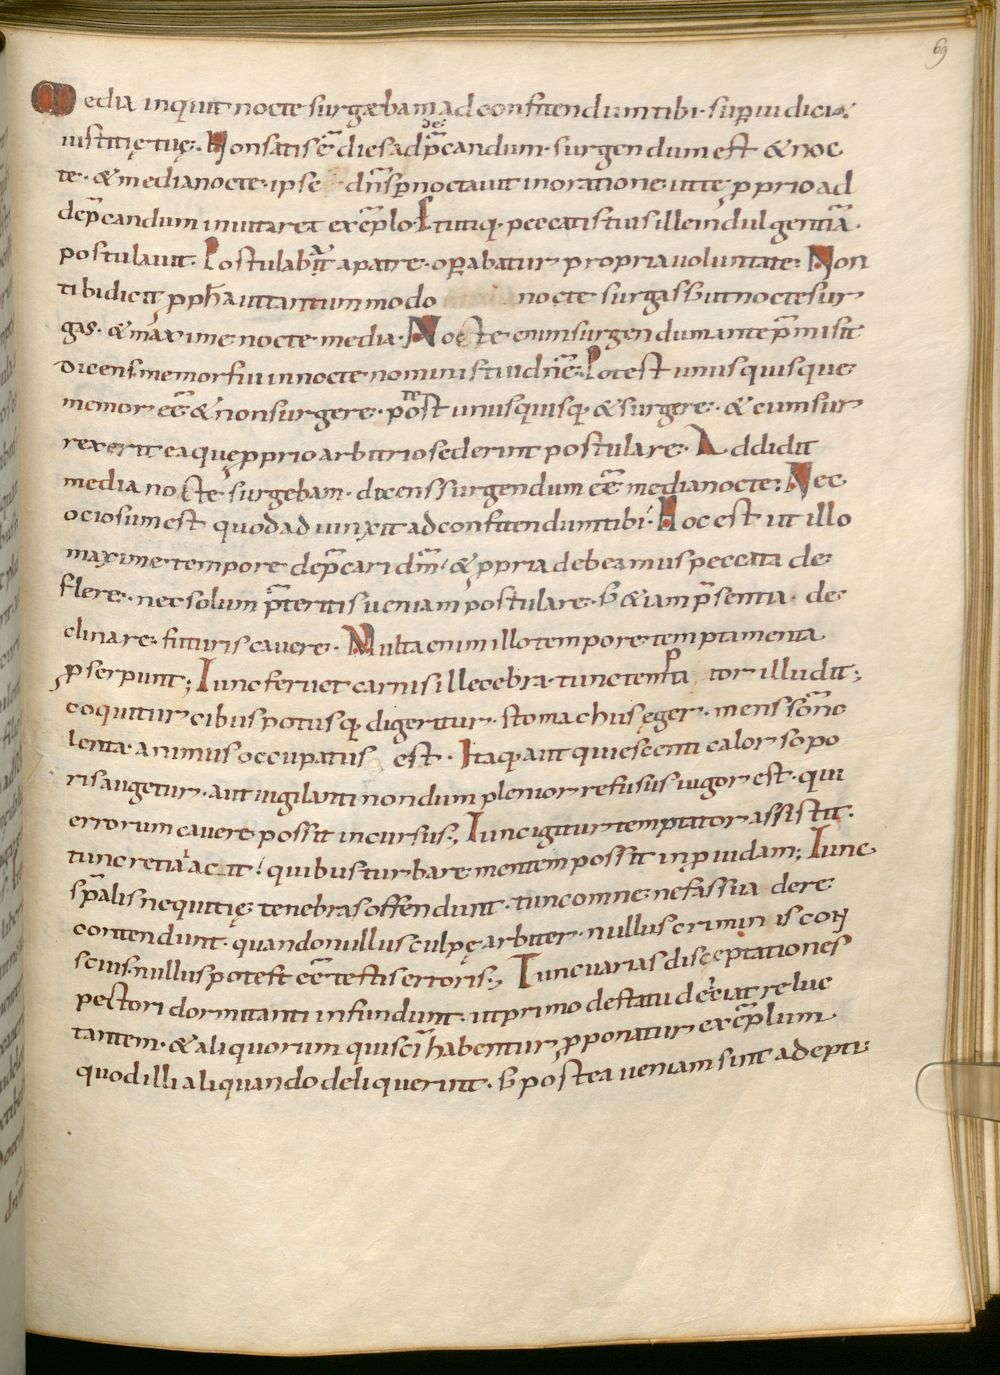 69
Media inquit nocte surgæbam ad confitendum tibi · sup̲ iudicia
iustitię tuę. Non satis ē dies ad dep̄candum · surgendum est & noc
te · & media nocte · ipse dn̄s p̲noctavit in oratione · ut te ꝓprio ad
dep̄candum invitaret exēplo · Itaq; peccatis tuis ille indulgentiā ·
postulavit. Postulabat a patre · op̲abatur propria voluntate. Non
tibi dicit ꝓpħa ut tantummodo nocte surgas s; ut nocte sur
gas · & maxime nocte media · Nocte enim surgendum ante p̄misit
dicens · memor fui in nocte nominis tui dn̄e. Potest unusquisque
memor eē & non surgere · potest unusquisq; & surgere · & cum sur
rexerit ea quę ꝓprio arbitrio sederint postulare · Addidit
media nocte surgebam · dicens surgendum eē media nocte. Nec
ociosum est quod adiunxit ad confitendum tibi · Hoc est ut illo
maxime tempore dep̄cari dm̄ / & ꝓpria debeamus peccata de
flere · nec solum p̄teritis veniam postulare · s; & iam p̄sentia · de
clinare · futuris cavere · Multa enim illo tempore temptamenta
ꝓserpunt; Tunc fervet carnis illecebra · tunc temptator illudit;
coquitur cibus potusq; digeritur · stomachus ęger · mens sōno
lenta · animus occupatus est · Itaq; aut quiescenti calor sopo
ris augetur · aut vigilanti nondum plenior refusus vigor est · qui
errorum cavere possit incursus; Tunc igitur temptator assistit ·
tunc retia iacit / quibus turbare mentem possit inprovidam; Tunc
sp̄alis nequitię tenebras offendunt · tunc omne nefas suadere
contendunt · quando nullus culpę arbiter · nullus criminis con
scius · nullus potest eē testis erroris; Tunc varias disceptationes
pectori dormitanti infundunt · ut primo de statu deiciat reluc
tantem · & aliquorum qui sc̄i habentur ꝓponatur exēplum
quod illi aliquando deliquerint · s; postea veniam sint adepti ·